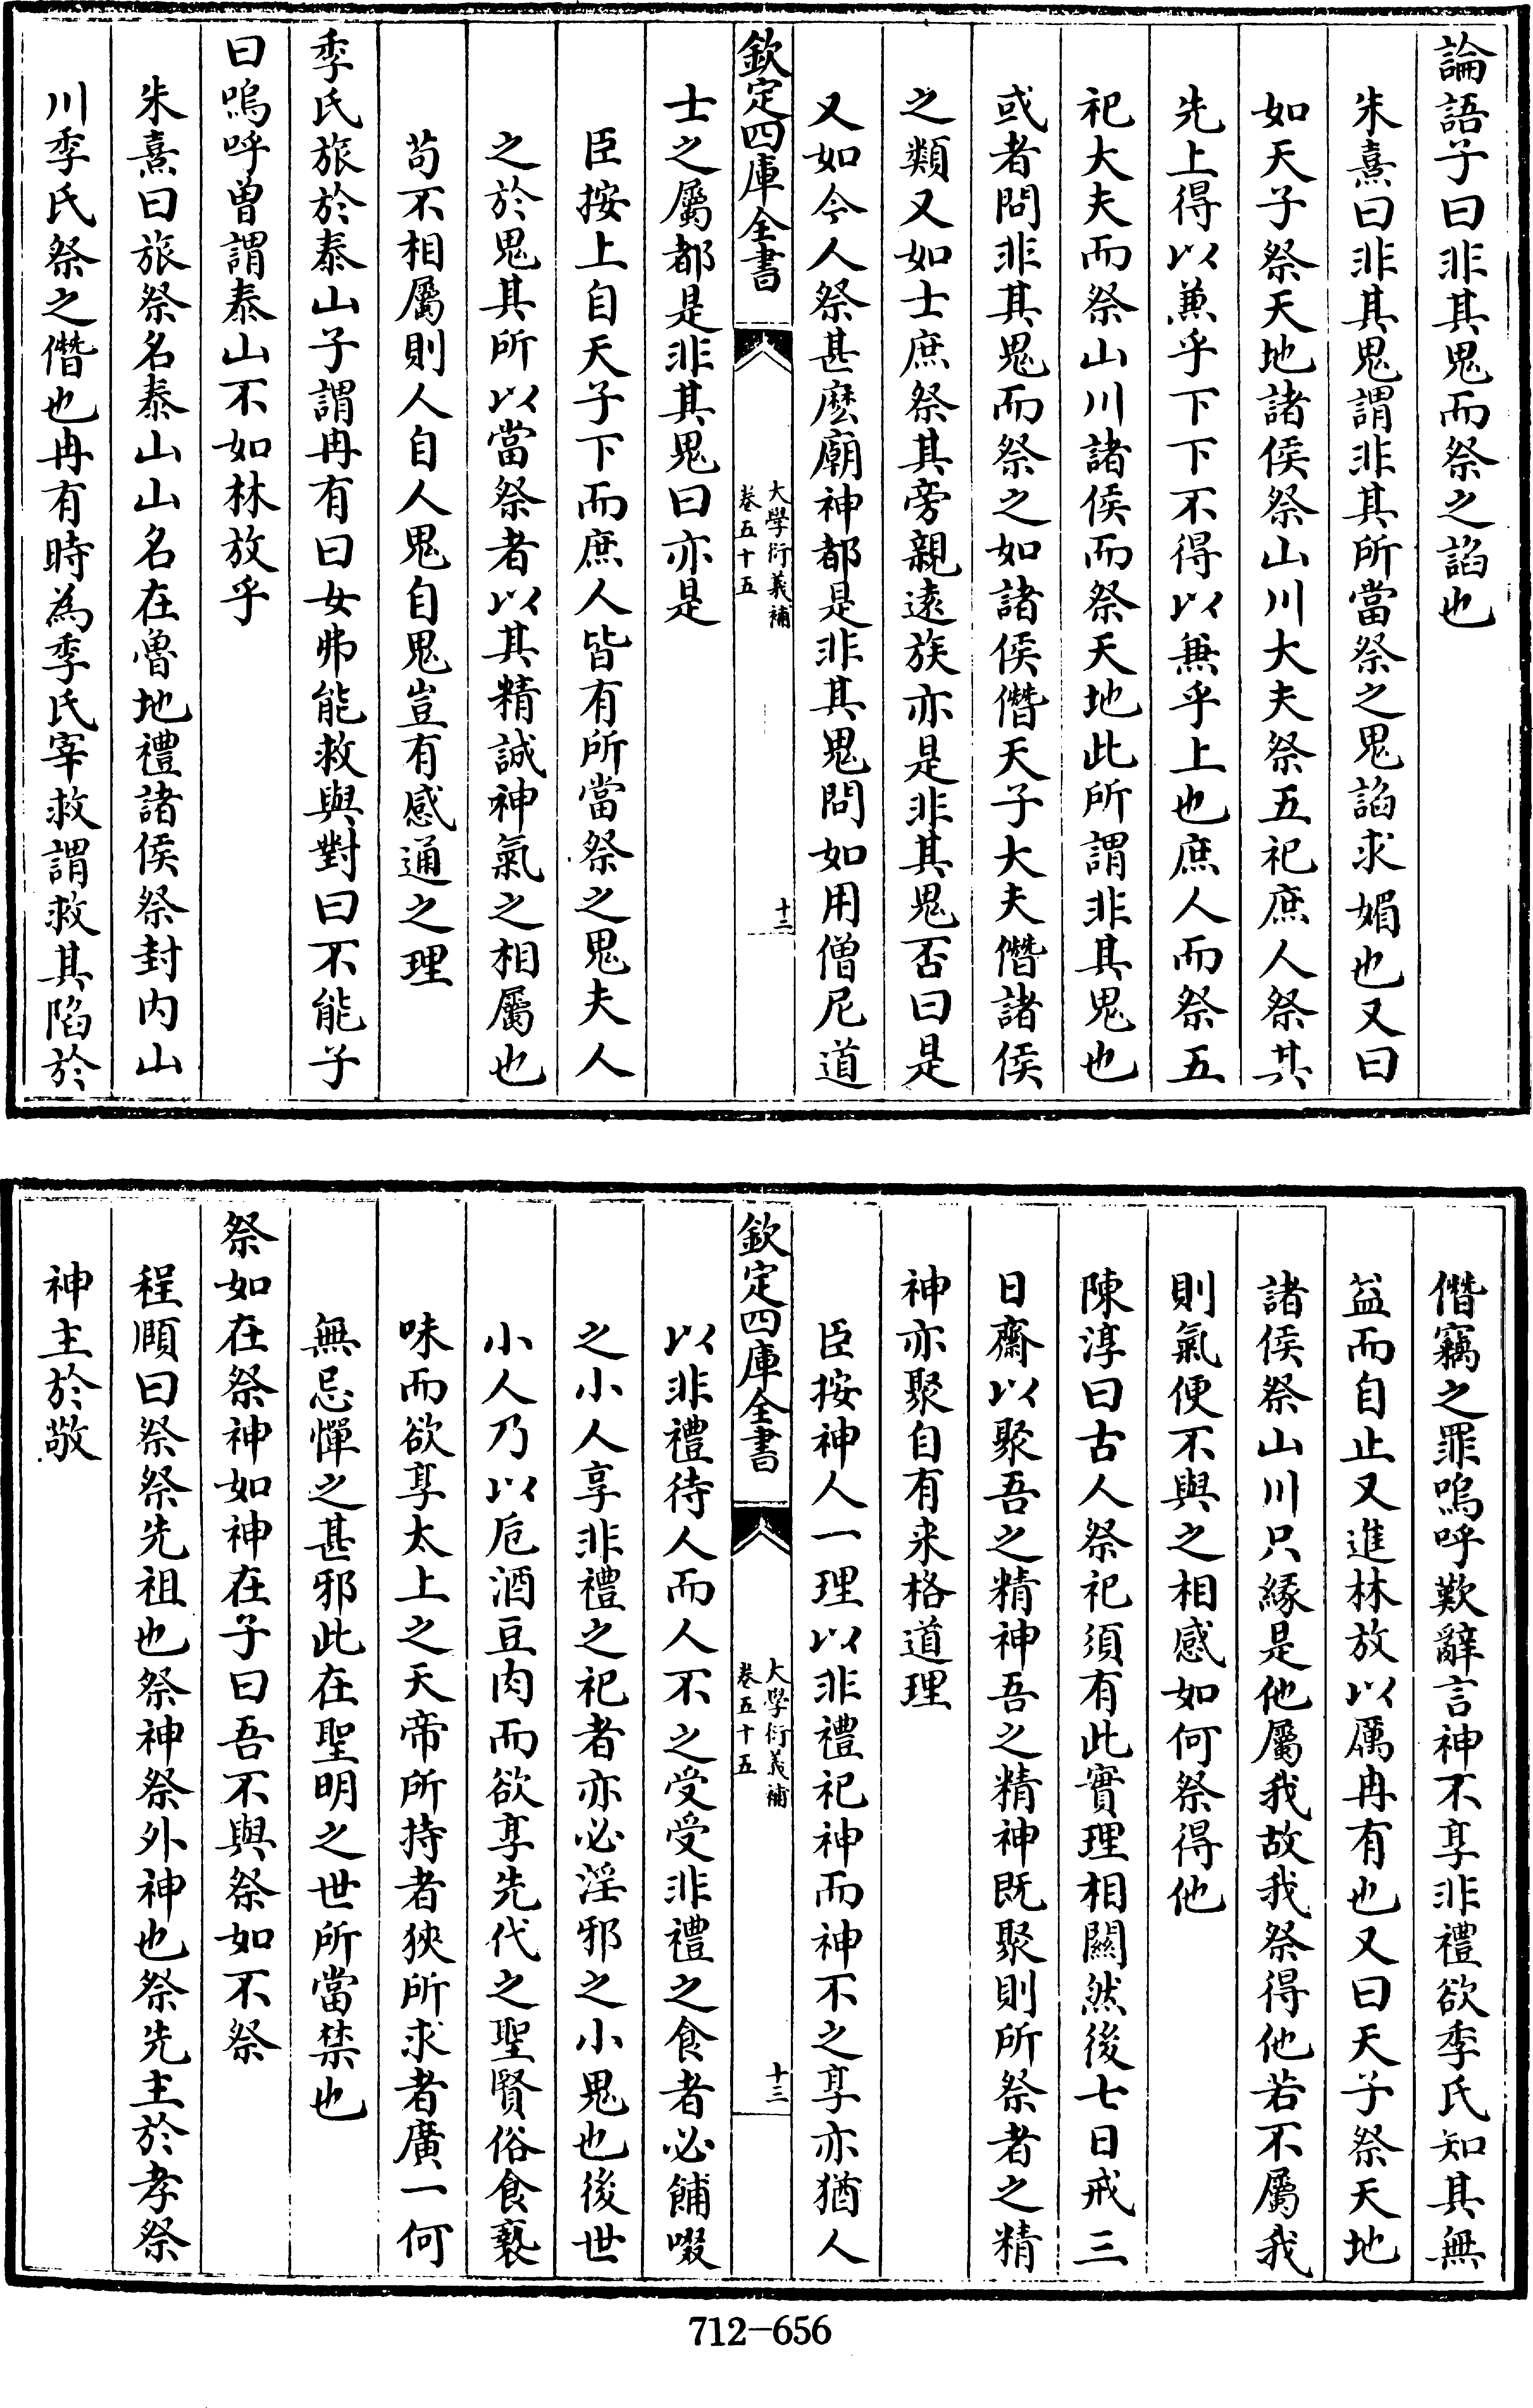 論語子曰非其鬼而祭之諂也
朱熹曰非其鬼謂非其所當祭之鬼諂求媚也又曰
如天子祭天地諸侯祭山川大夫祭五祀庶人祭其
先上得以兼乎下下不得以兼乎上也庶人而祭五
祀大夫而祭山川諸侯而祭天地此所謂非其鬼也
或者問非其鬼而祭之如諸侯僭天子大夫僭諸侯
之類又如士庶祭其旁親遠族亦是非其鬼否曰是
又如今人祭甚麽廟神都是非其鬼問如用僧尼道
欽定四庫全書
大學衍義補
卷五十五
十二
士之屬都是非其鬼曰亦是
臣按上自天子下而庶人皆有所當祭之鬼夫人
之於鬼其所以當祭者以其精誠神氣之相屬也
苟不相屬則人自人鬼自鬼豈有感通之理
季氏旅於泰山子謂冉有曰女弗能救與對曰不能子
曰嗚呼曾謂泰山不如林放乎
朱熹曰旅祭名泰山山名在魯地禮諸侯祭封内山
川季氏祭之僭也冉有時為季氏宰救謂救其陷於
僭竊之罪嗚呼歎辭言神不享非禮欲季氏知其無
益而自止又進林放以厲冉有也又曰天子祭天地
諸侯祭山川只緣是他屬我故我祭得他若不屬我
則氣便不與之相感如何祭得他
陳淳曰古人祭祀須有此實理相關然後七日戒三
日齋以聚吾之精神吾之精神既聚則所祭者之精
神亦聚自有来格道理
臣按神人一理以非禮祀神而神不之享亦猶人
欽定四庫全書
大學衍義補
卷五十五
十三
以非禮待人而人不之受受非禮之食者必餔啜
之小人享非禮之祀者亦必淫邪之小鬼也後世
小人乃以卮酒豆肉而欲享先代之聖賢俗食褻
味而欲享太上之天帝所持者狹所求者廣一何
無忌憚之甚邪此在聖明之世所當禁也
祭如在祭神如神在子曰吾不與祭如不祭
程頤曰祭祭先祖也祭神祭外神也祭先主於孝祭
神主於敬
712-656